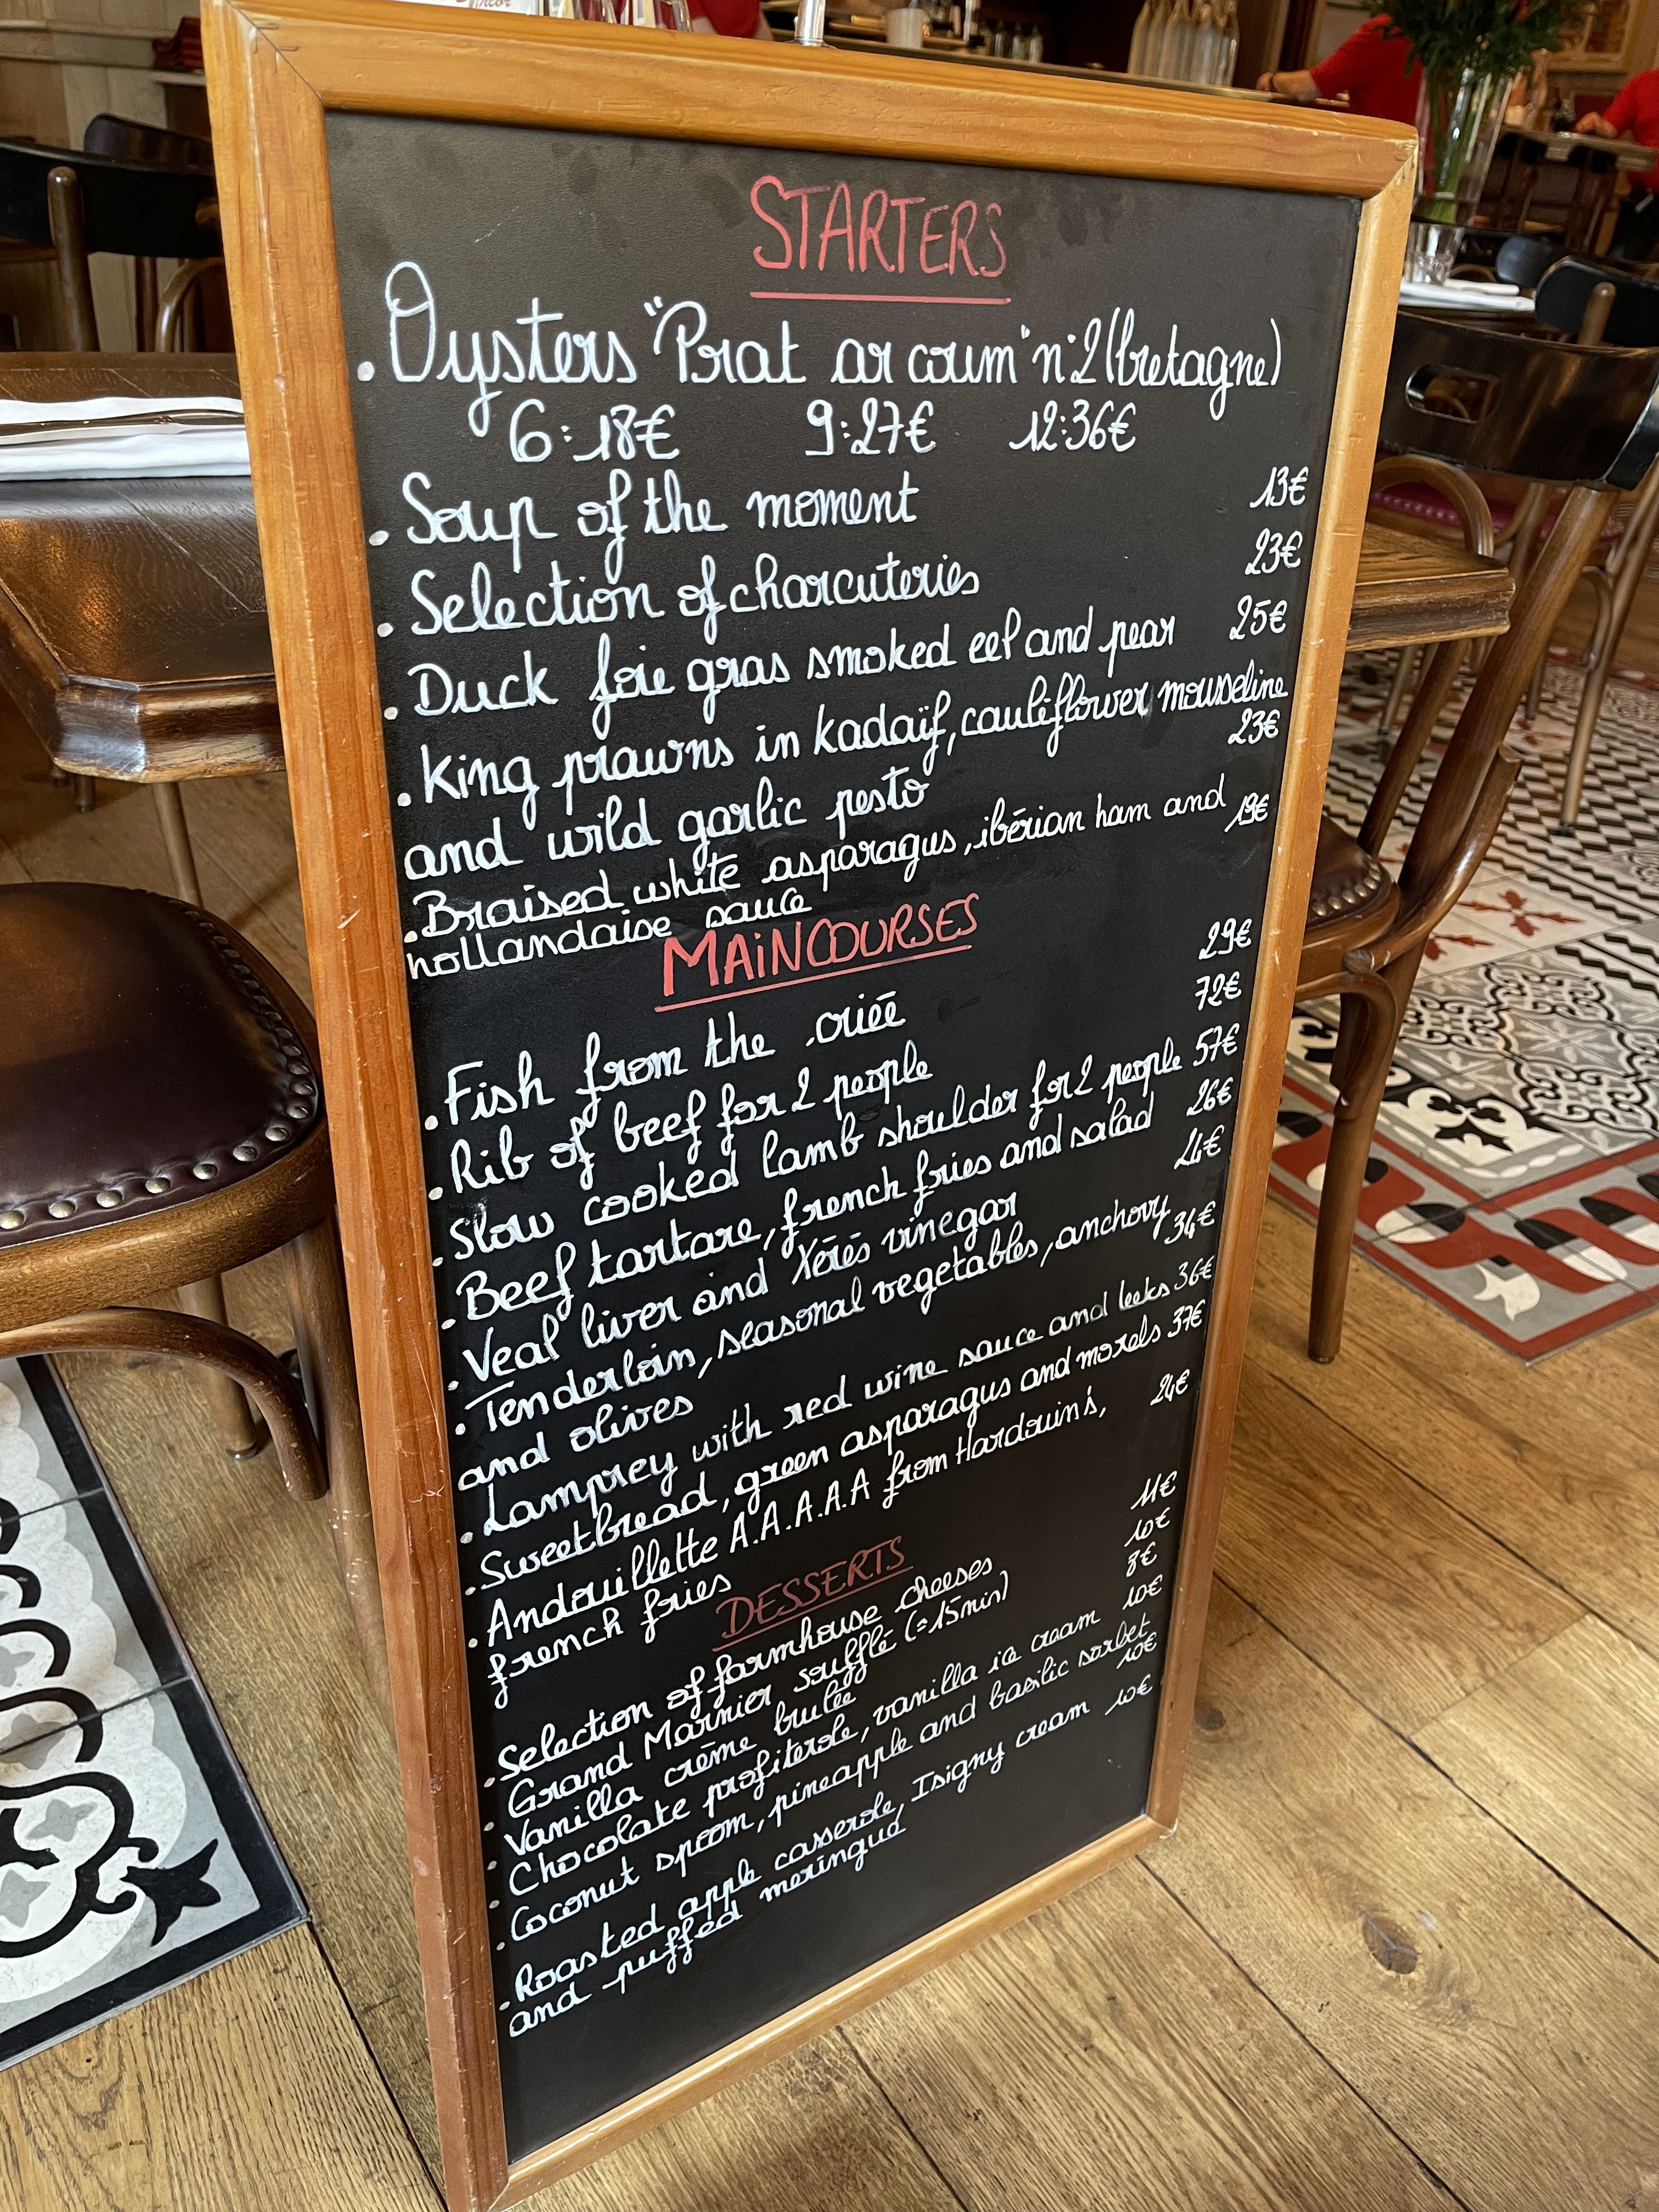 STARTERS
. Oysters "Prat ar coum" n°2 (bretagne)
6: 18€ 9: 27€ 12: 36€
. Soup of the moment 13€
. Selection of charcuteries 23€
. Duck foie gras smoked eel and pear 25€
. King prawns in kadaïf, cauliflower mousseline
and wild garlic pesto 23€
. Braised white asparagus, ibérian ham and 19€
hollandaise sauce
MAIN COURSES
. Fish from the criée 29€
. Rib of beef for 2 people 72€
. Slow cooked lamb shoulder for 2 people 57€
. Beef tartare, french fries and salad 26€
. Veal liver and Xérès vinegar 24€
. Tenderloin, seasonal vegetables, anchovy 34€
and olives
. Lamprey with red wine sauce and leeks 36€
. Sweetbread, green asparagus and morels 37€
. Andouillette A.A.A.A.A from Hardouin's, 24€
french fries
DESSERTS
. Selection of farmhouse cheeses 11€
. Grand Marnier soufflé (=15min) 10€
. Vanilla crème brulée 8€
. Chocolate profiterole, vanilla ice cream 10€
. Coconut spoom, pineapple and basilic sorbet
10€
. Roasted apple casserole, Isigny cream 10€
and puffed meringue